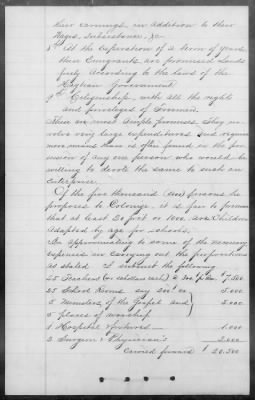 their earnings, in addition to their
Wages, Subsistence, &c—
8th At the expiration of a term of years
these Emigrants are promised Lands
freely according to the laws of the
Haytian Government
9th Citizenship, with all the rights
and privileges of Freemen
These are most ample promises. They in-
volve very large expenditures and require
more means than is often found in the pos-
session of any one person who would be
willing to devote the same to such an
enterprise.
Of the five thousand (5000) persons he
proposes to Colonize, it is fair to presume
that at least 20 pr ct or 1000, are Children
adapted by age for schools.
In approximating to some of the necessary
expenses in carrying out the propositions
as stated I submit the following
25 Teachers (or salaries each) $300 pr an $7.500
25 School Rooms say 200 ea 5.000
5 Ministers of the Gospel and
5 places of worship 5.000
1 Hospital & fixtures — 1.000
2 Surgeon & Physician's 2.000
Carried forward $20.500